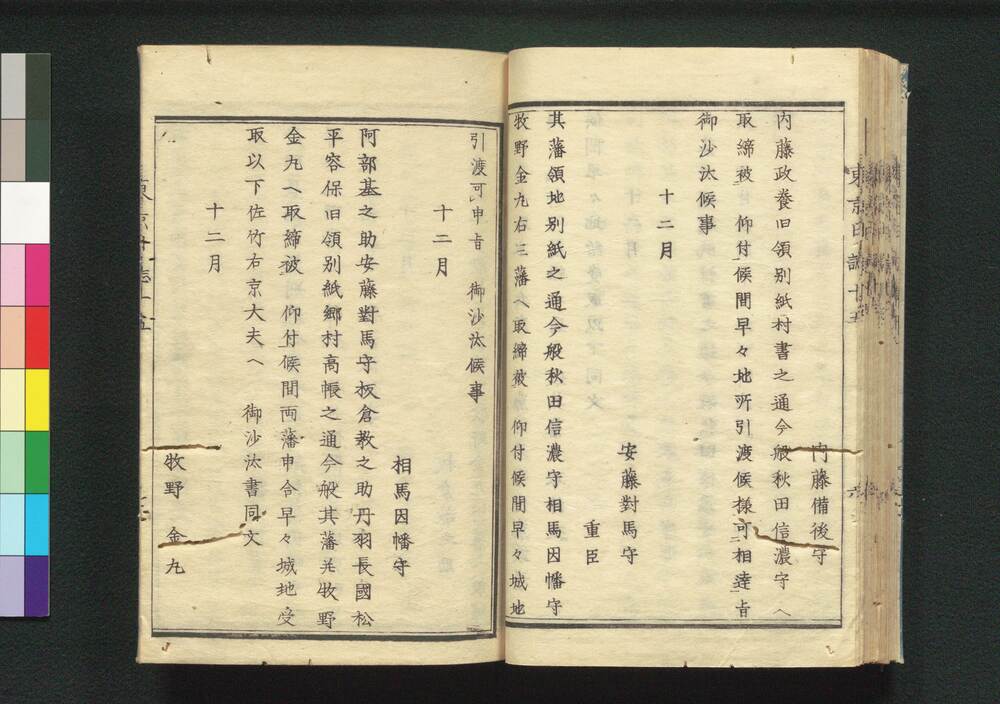 内藤備後守
内藤政養旧領別紙村書之通今般秋田信濃守へ
取締被　仰付候間早々地所引渡候様可相達旨
御沙汰候事
十二月
安藤對馬守
重臣
其藩領地別紙之通今般秋田信濃守相馬因幡守
牧野金丸右三藩へ取締被　仰付候間早々城地
引渡可申旨　御沙汰候事
十二月
相馬因幡守
阿部基之助安藤對馬守板倉教之助丹羽長國松
平容保旧領別紙郷村高帳之通今般其藩并牧野
金丸へ取締被　仰付候間両藩申合早々城地受
取以下佐竹右京大夫へ　御沙汰書同文
十二月
牧野　金丸